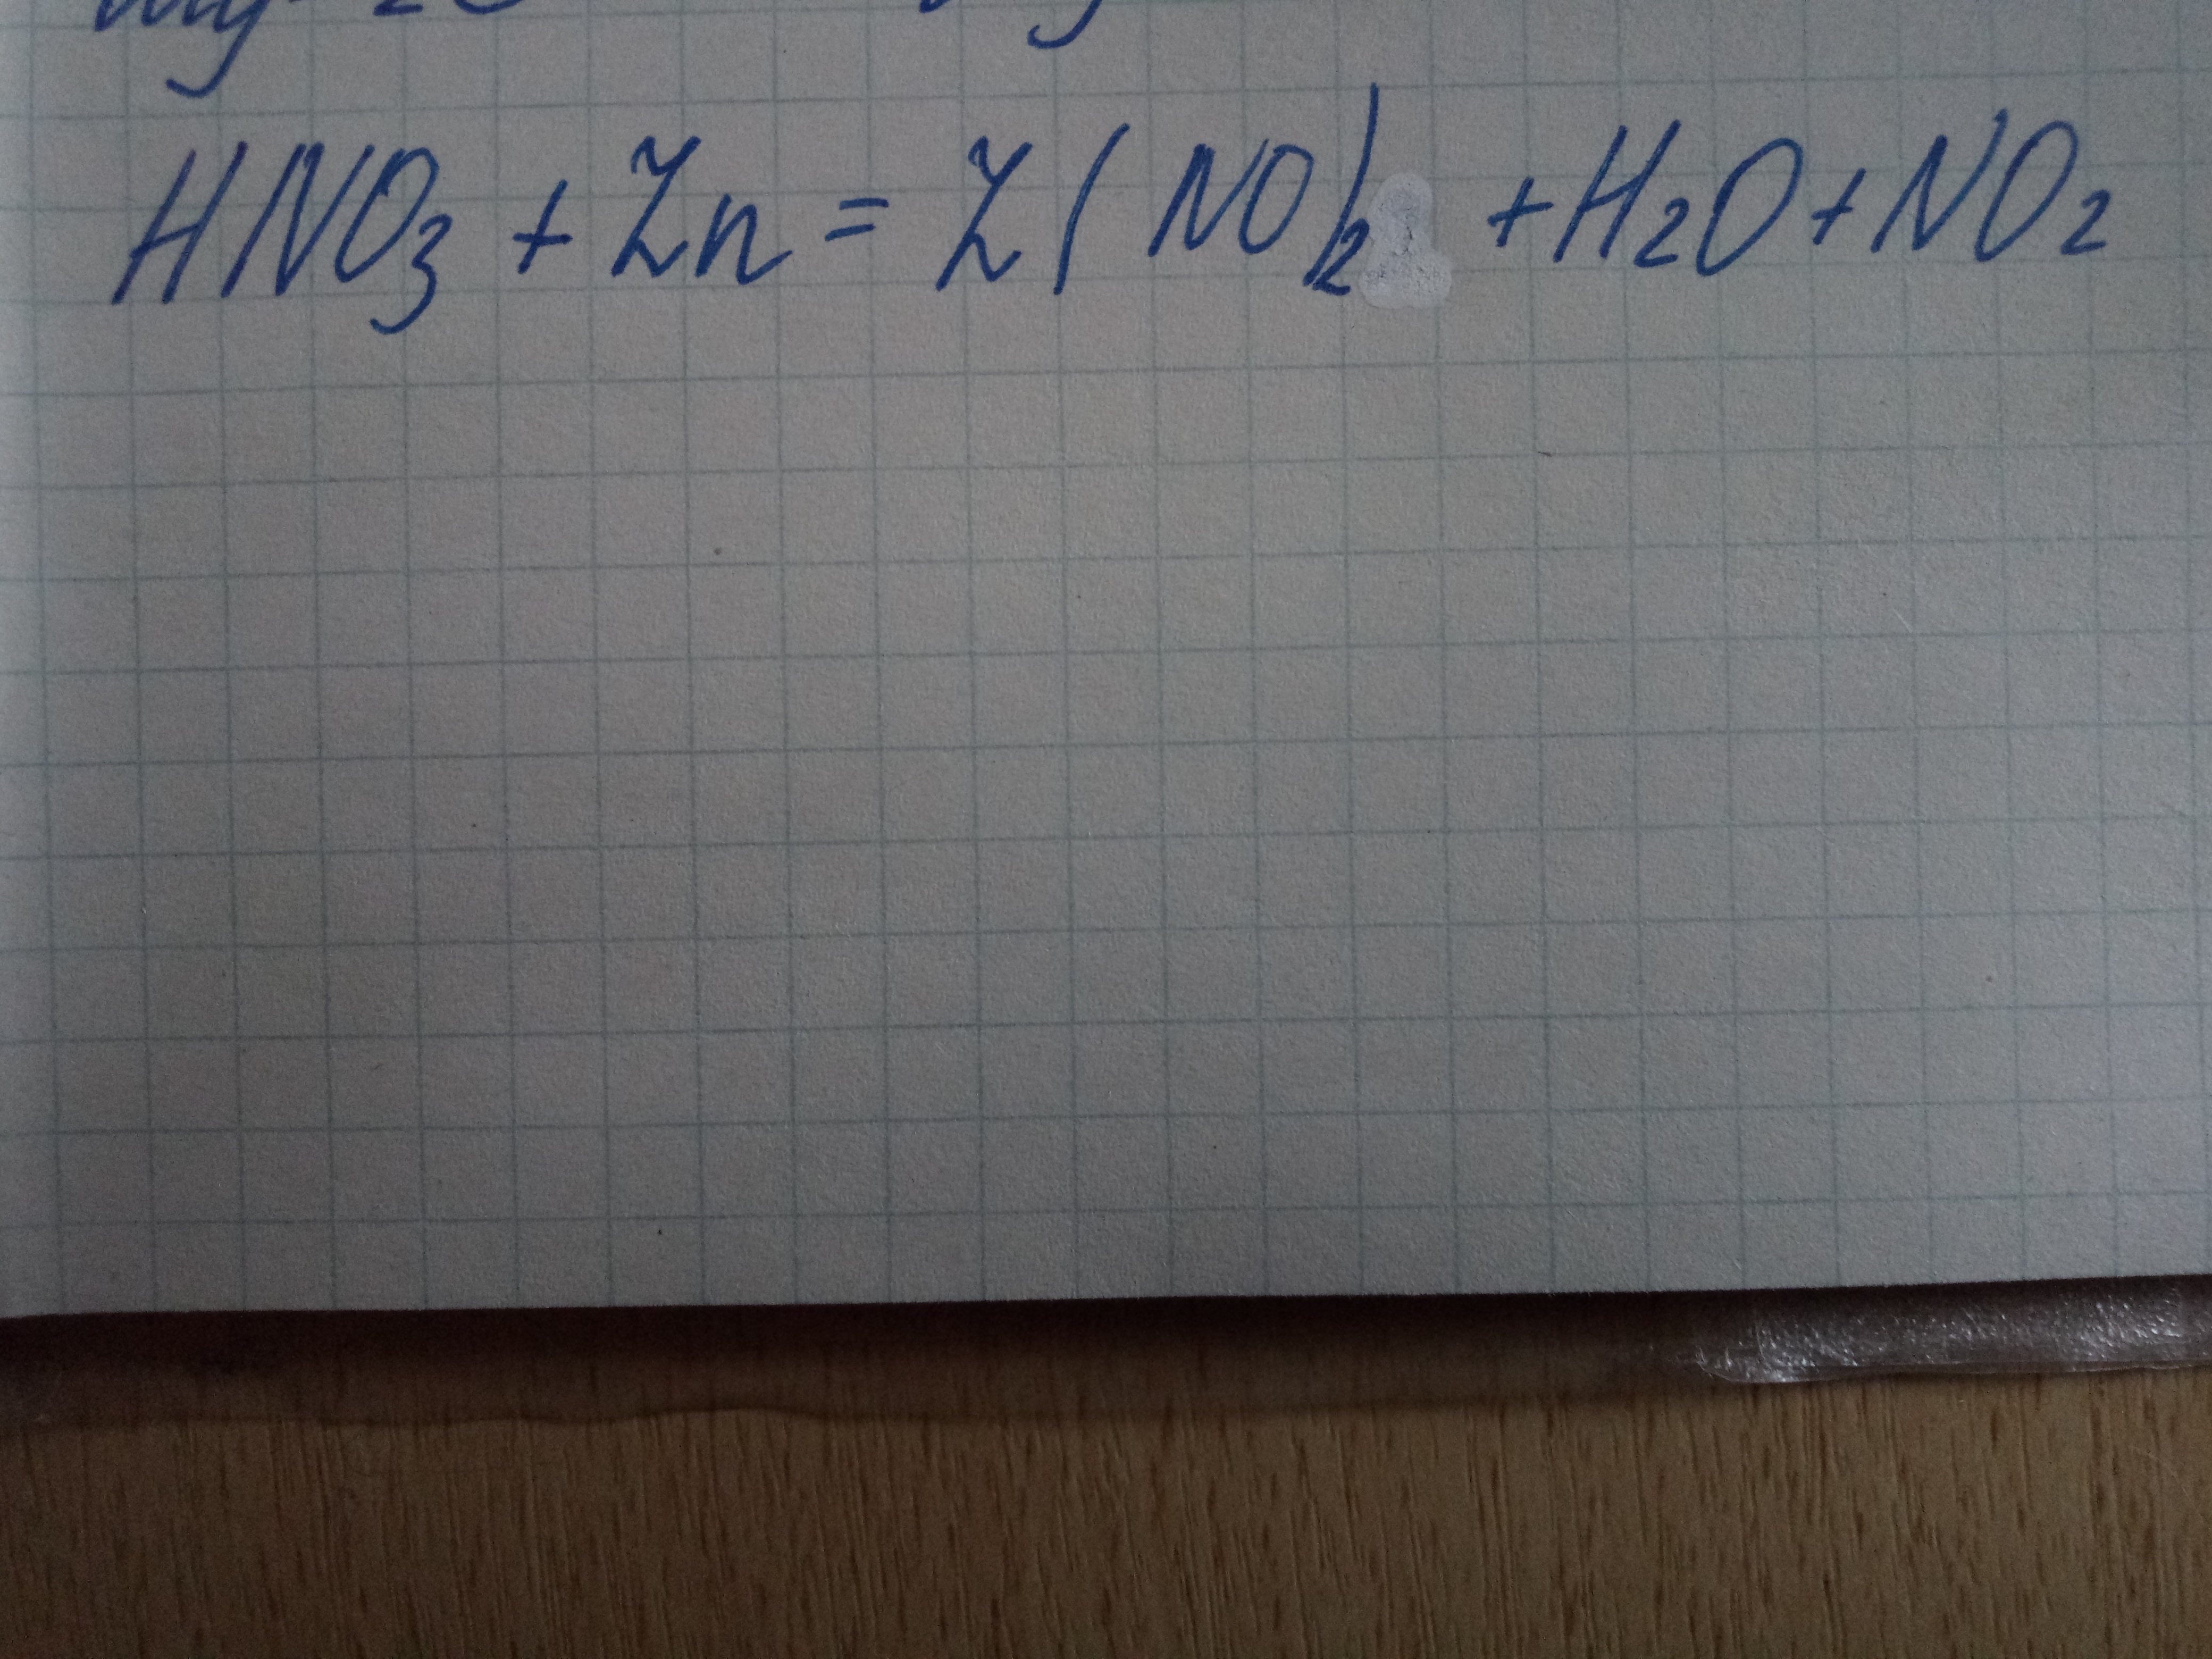 HNO₃ + Zn = Z(NO)₂ + H₂O + NO₂